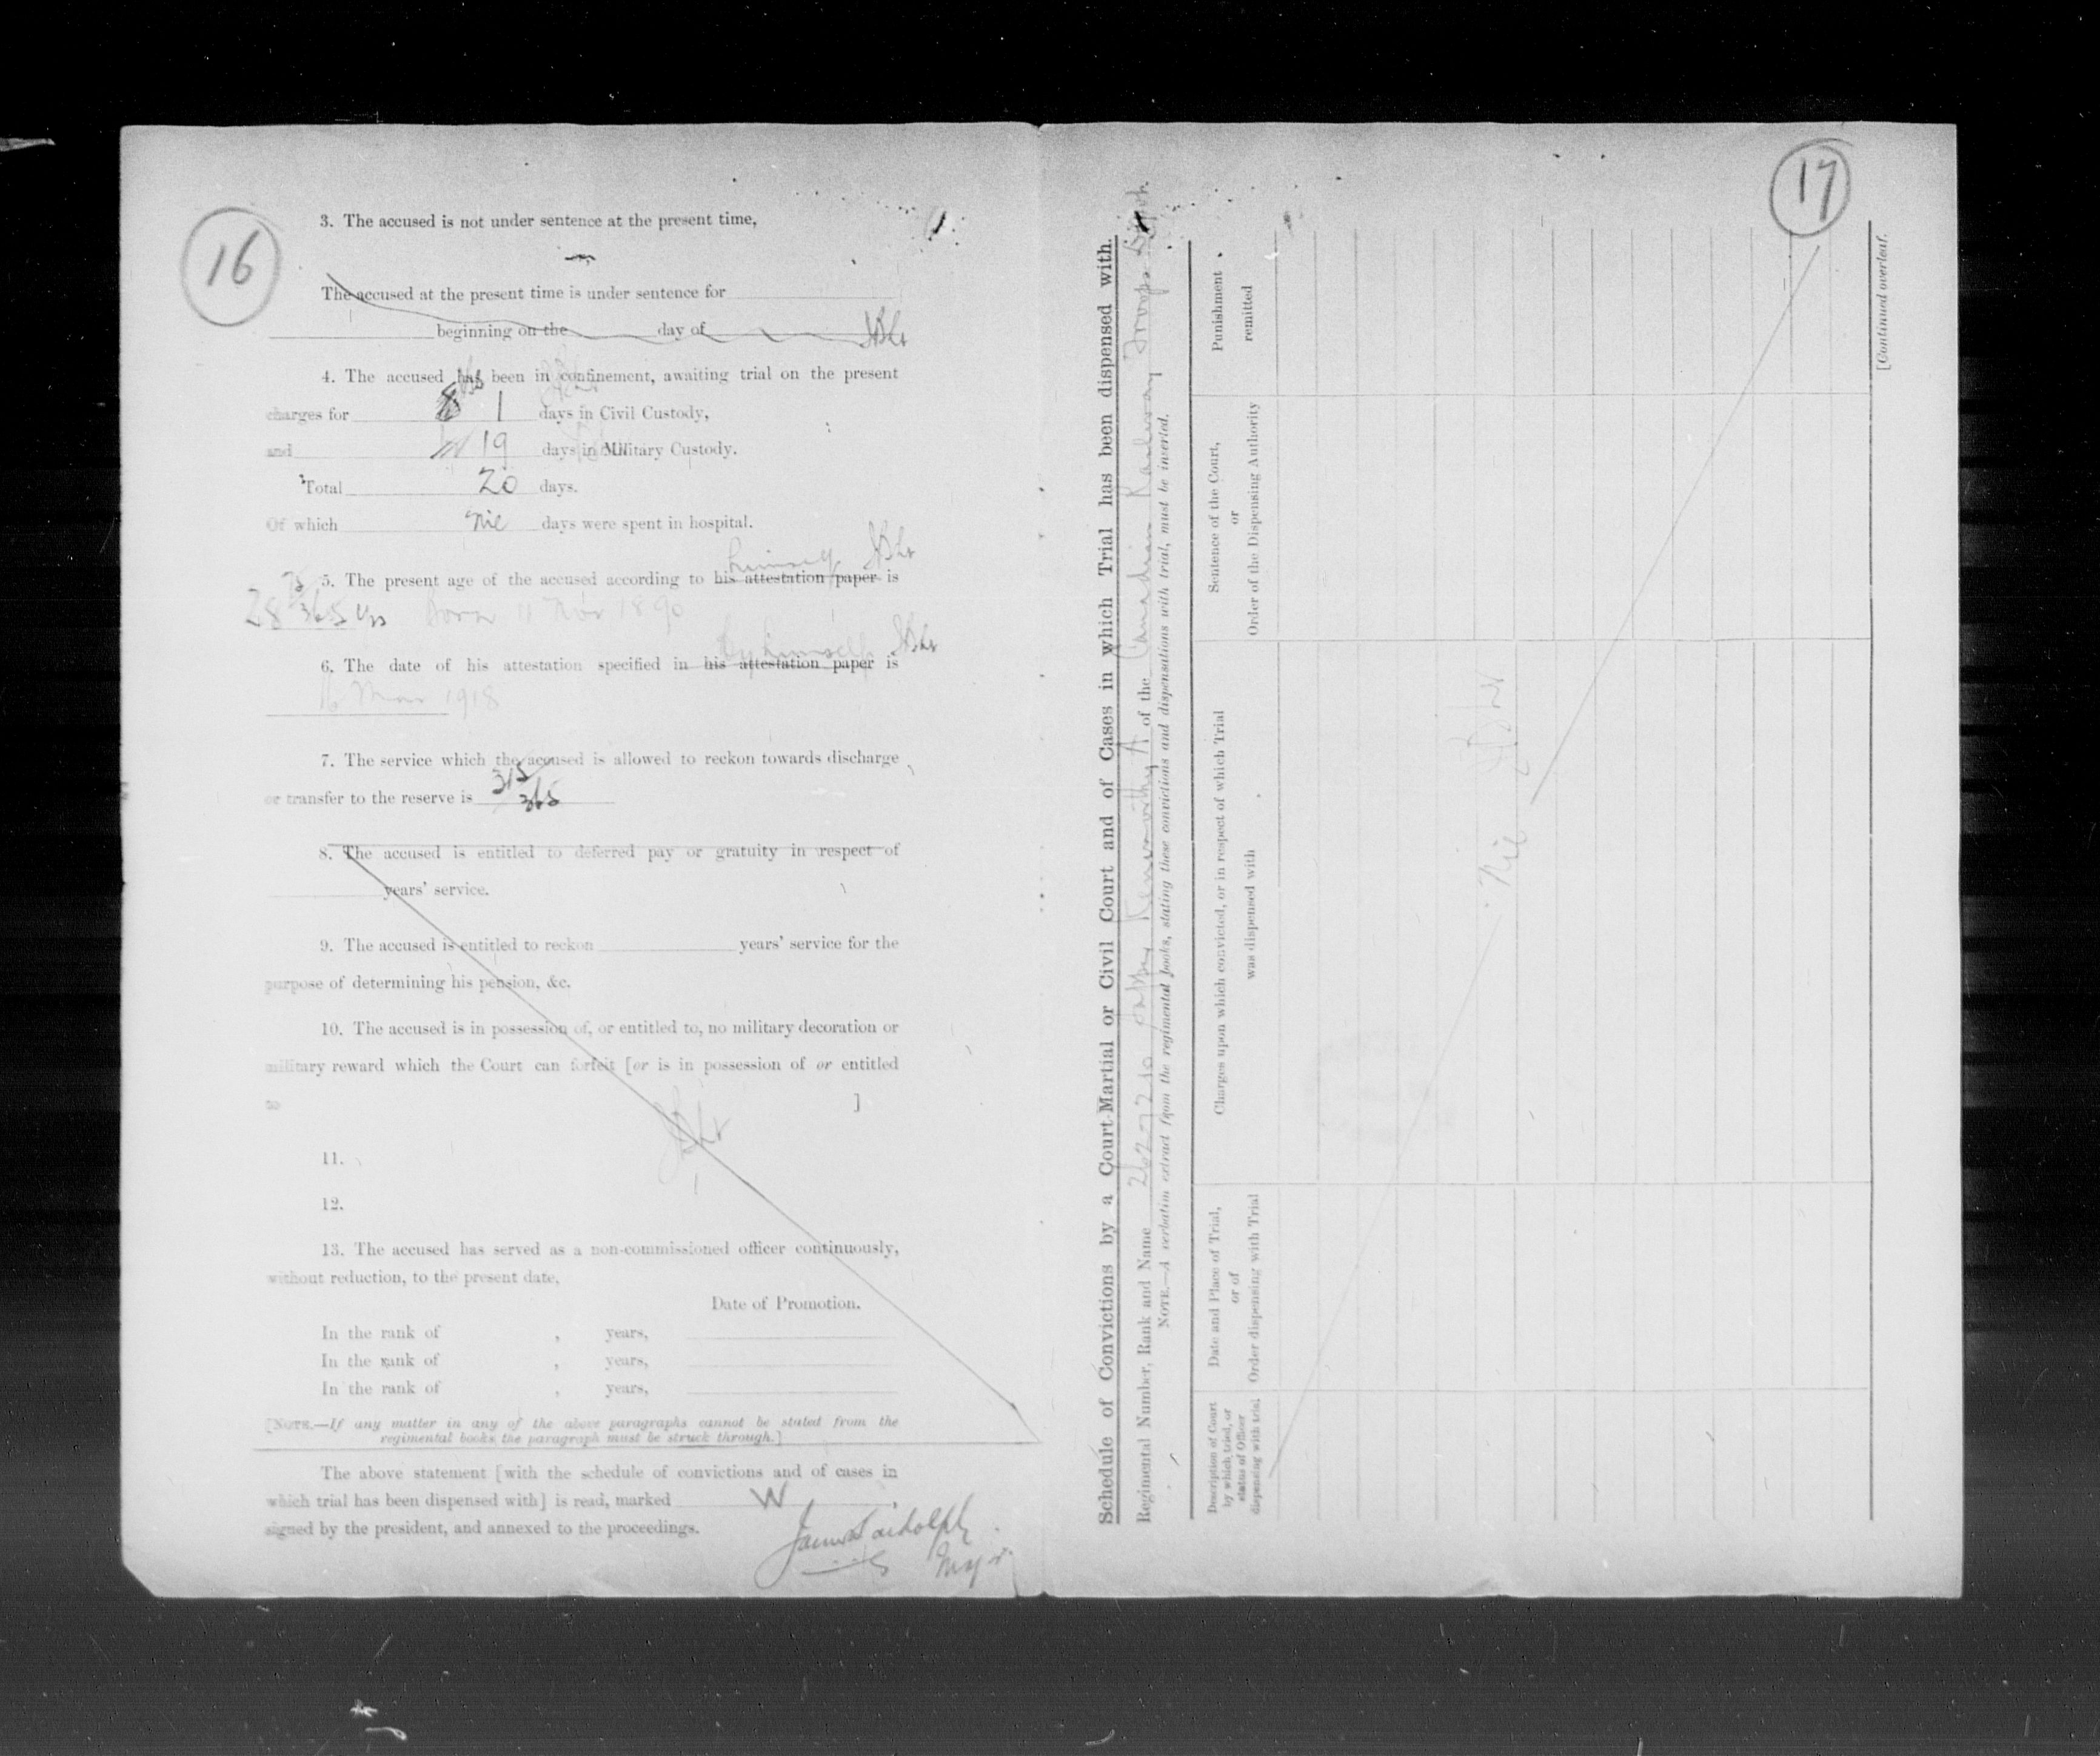 16
3. The accused is not under sentence at the present time,
The accused at the present time is under sentence for
beginning on the day of
4. The accused has been in confinement, awaiting trial on the present
charges for 1 days in Civil Custody,
and 19 days in Military Custody.
Total 20 days.
Of which nil days were spent in hospital.
himself
5. The present age of the accused according to his attestation paper is
28 75/365 yrs born 11 Nov 1890
by himself
6. The date of his attestation specified in his attestation paper is
16 Mar 1918
7. The service which the accused is allowed to reckon towards discharge
or transfer to the reserve is 315/365
8. The accused is entitled to deferred pay or gratuity in respect of
years' service.
9. The accused is entitled to reckon years' service for the
purpose of determining his pension, &c.
10. The accused is in possession of, or entitled to, no military decoration or
military reward which the Court can forfeit [or is in possession of or entitled
to ]
11.
12.
13. The accused has served as a non-commissioned officer continuously,
without reduction, to the present date,
Date of Promotion.
In the rank of , years,
In the rank of , years,
In the rank of , years,
[NOTE.—If any matter in any of the above paragraphs cannot be stated from the
regimental books the paragraph must be struck through.]
The above statement [with the schedule of convictions and of cases in
which trial has been dispensed with] is read, marked W
signed by the president, and annexed to the proceedings.
Major
17
Schedule of Convictions by a Court-Martial or Civil Court and of Cases in which Trial has been dispensed with.
Regimental Number, Rank and Name Kenworthy A of the Canadian Railway Troops Depot
NOTE.—A verbatim extract from the regimental books, stating these convictions and dispensations with trial, must be inserted.
Description of Court
by which tried, or
status of Officer
dispensing with trial
Date and Place of Trial,
or of
Order dispensing with Trial
Charges upon which convicted, or in respect of which Trial
was dispensed with
Sentence of the Court,
or
Order of the Dispensing Authority
Punishment
remitted
Nil
[Continued overleaf.